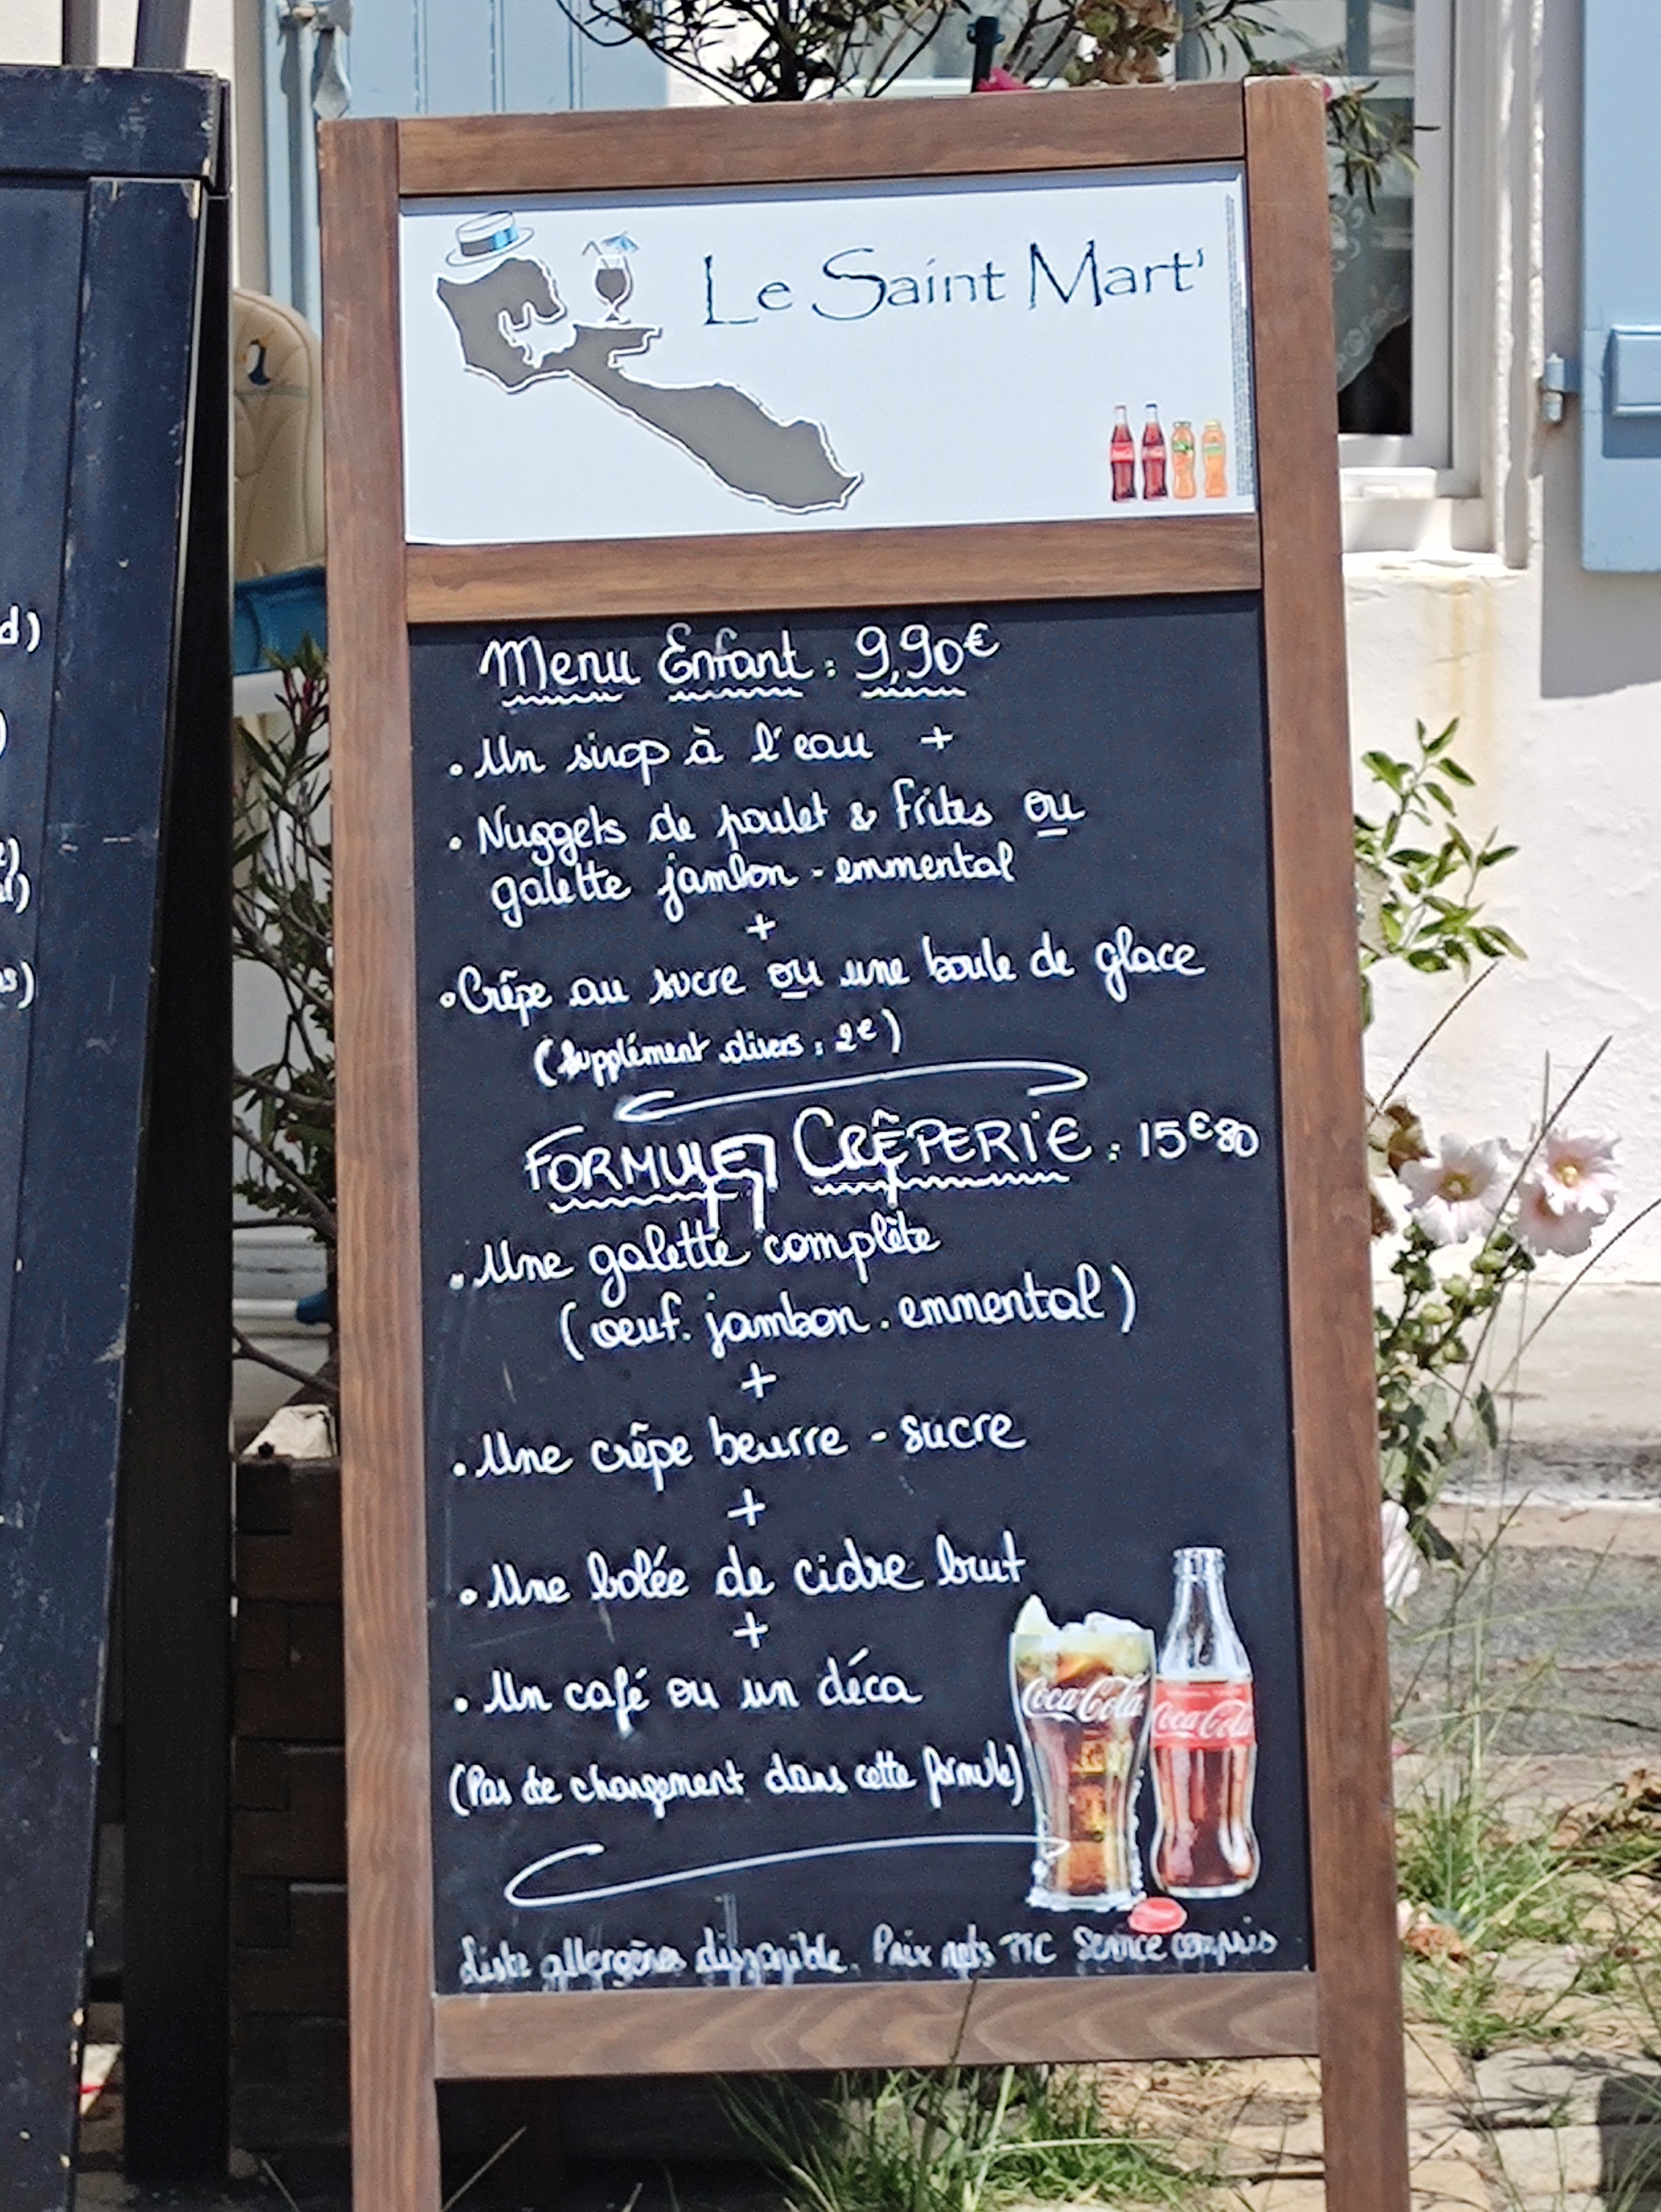 Le Saint Mart'
Menu Enfant : 9,90€
• Un sirop à l'eau +
• Nuggets de poulet & Frites ou
galette jambon - emmental
+
• Crêpe au sucre ou une boule de glace
(Supplément divers : 2€)
FORMULE CRÊPERIE : 15€80
• Une galette complète
(oeuf. jambon. emmental)
+
• Une crêpe beurre - sucre
+
• Une bolée de cidre brut
+
• Un café ou un déca
(Pas de changement dans cette formule)
Coca-Cola
Coca-Cola
Liste allergènes disponible. Prix nets TTC Service compris
d)
)
s)